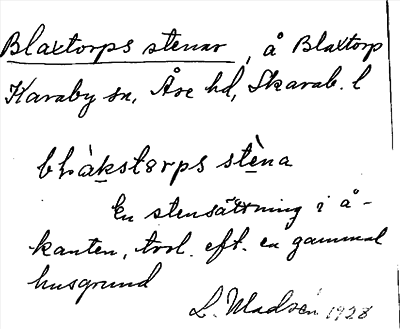 Blaxtorps stenar, å Blaxtorp
Karaby sn, Åse hd, Skarab. l
bḷàkstɔrps stèna
En stensättning i å-
kanten, trol. eft. en gammal
husgrund
L. Madsén 1928